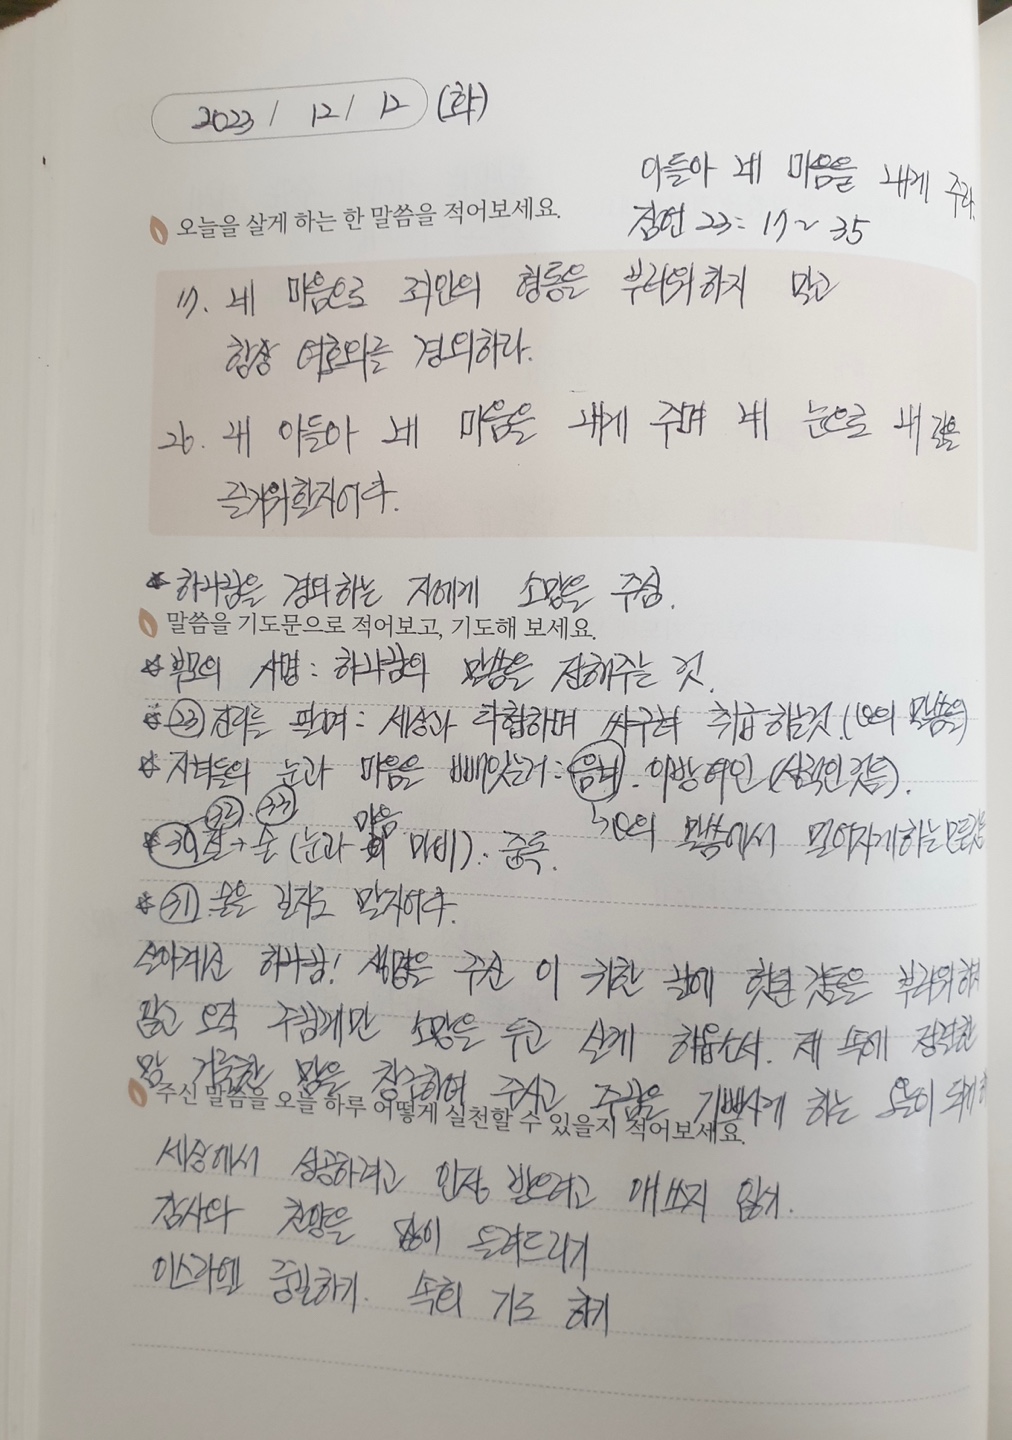 2023 / 12 / 12 (화)
아들아 네 마음을 내게 주라
오늘을 살게 하는 한 말씀을 적어보세요.
잠언 23: 17~ 35
17. 네 마음으로 죄인의 형통을 부러워하지 말고
항상 여호와를 경외하라.
26. 내 아들아 네 마음을 내게 주며 네 눈으로 내 길을
즐거워할지어다.
* 하나님을 경외하는 자에게 소망을 주심.
말씀을 기도문으로 적어보고, 기도해 보세요.
* 부모의 사명: 하나님의 말씀을 전해주는 것.
* (23) 진리를 팔며: 세상과 타협하며 싸구려 취급하는것. (의 말씀을)
* 자녀들의 눈과 마음을 빼앗는거: 음녀. 이방여인 (성적인것들).
(32) (33) 마음
의 말씀에서 멀어지게하는
* (30) 술 (눈과 마비). 중독.
* (31) 술을 보지도 말지어다.
살아계신 하나님! 생명을 주신 이 귀한 날에 헛된 것들을 부러워하지
말고 오직 주님께만 소망을 두고 살게 하옵소서. 제 속에 정결한
맘 거룩한 맘을 창조하여 주시고 주님을 기쁘시게 하는 이 되게
주신 말씀을 오늘 하루 어떻게 실천할 수 있을지 적어보세요.
세상에서 성공하려고 인정 받으려고 애쓰지 않기.
감사와 찬양을 많이 올려드리기
이스라엘 중보하기. 속회 기도 하기